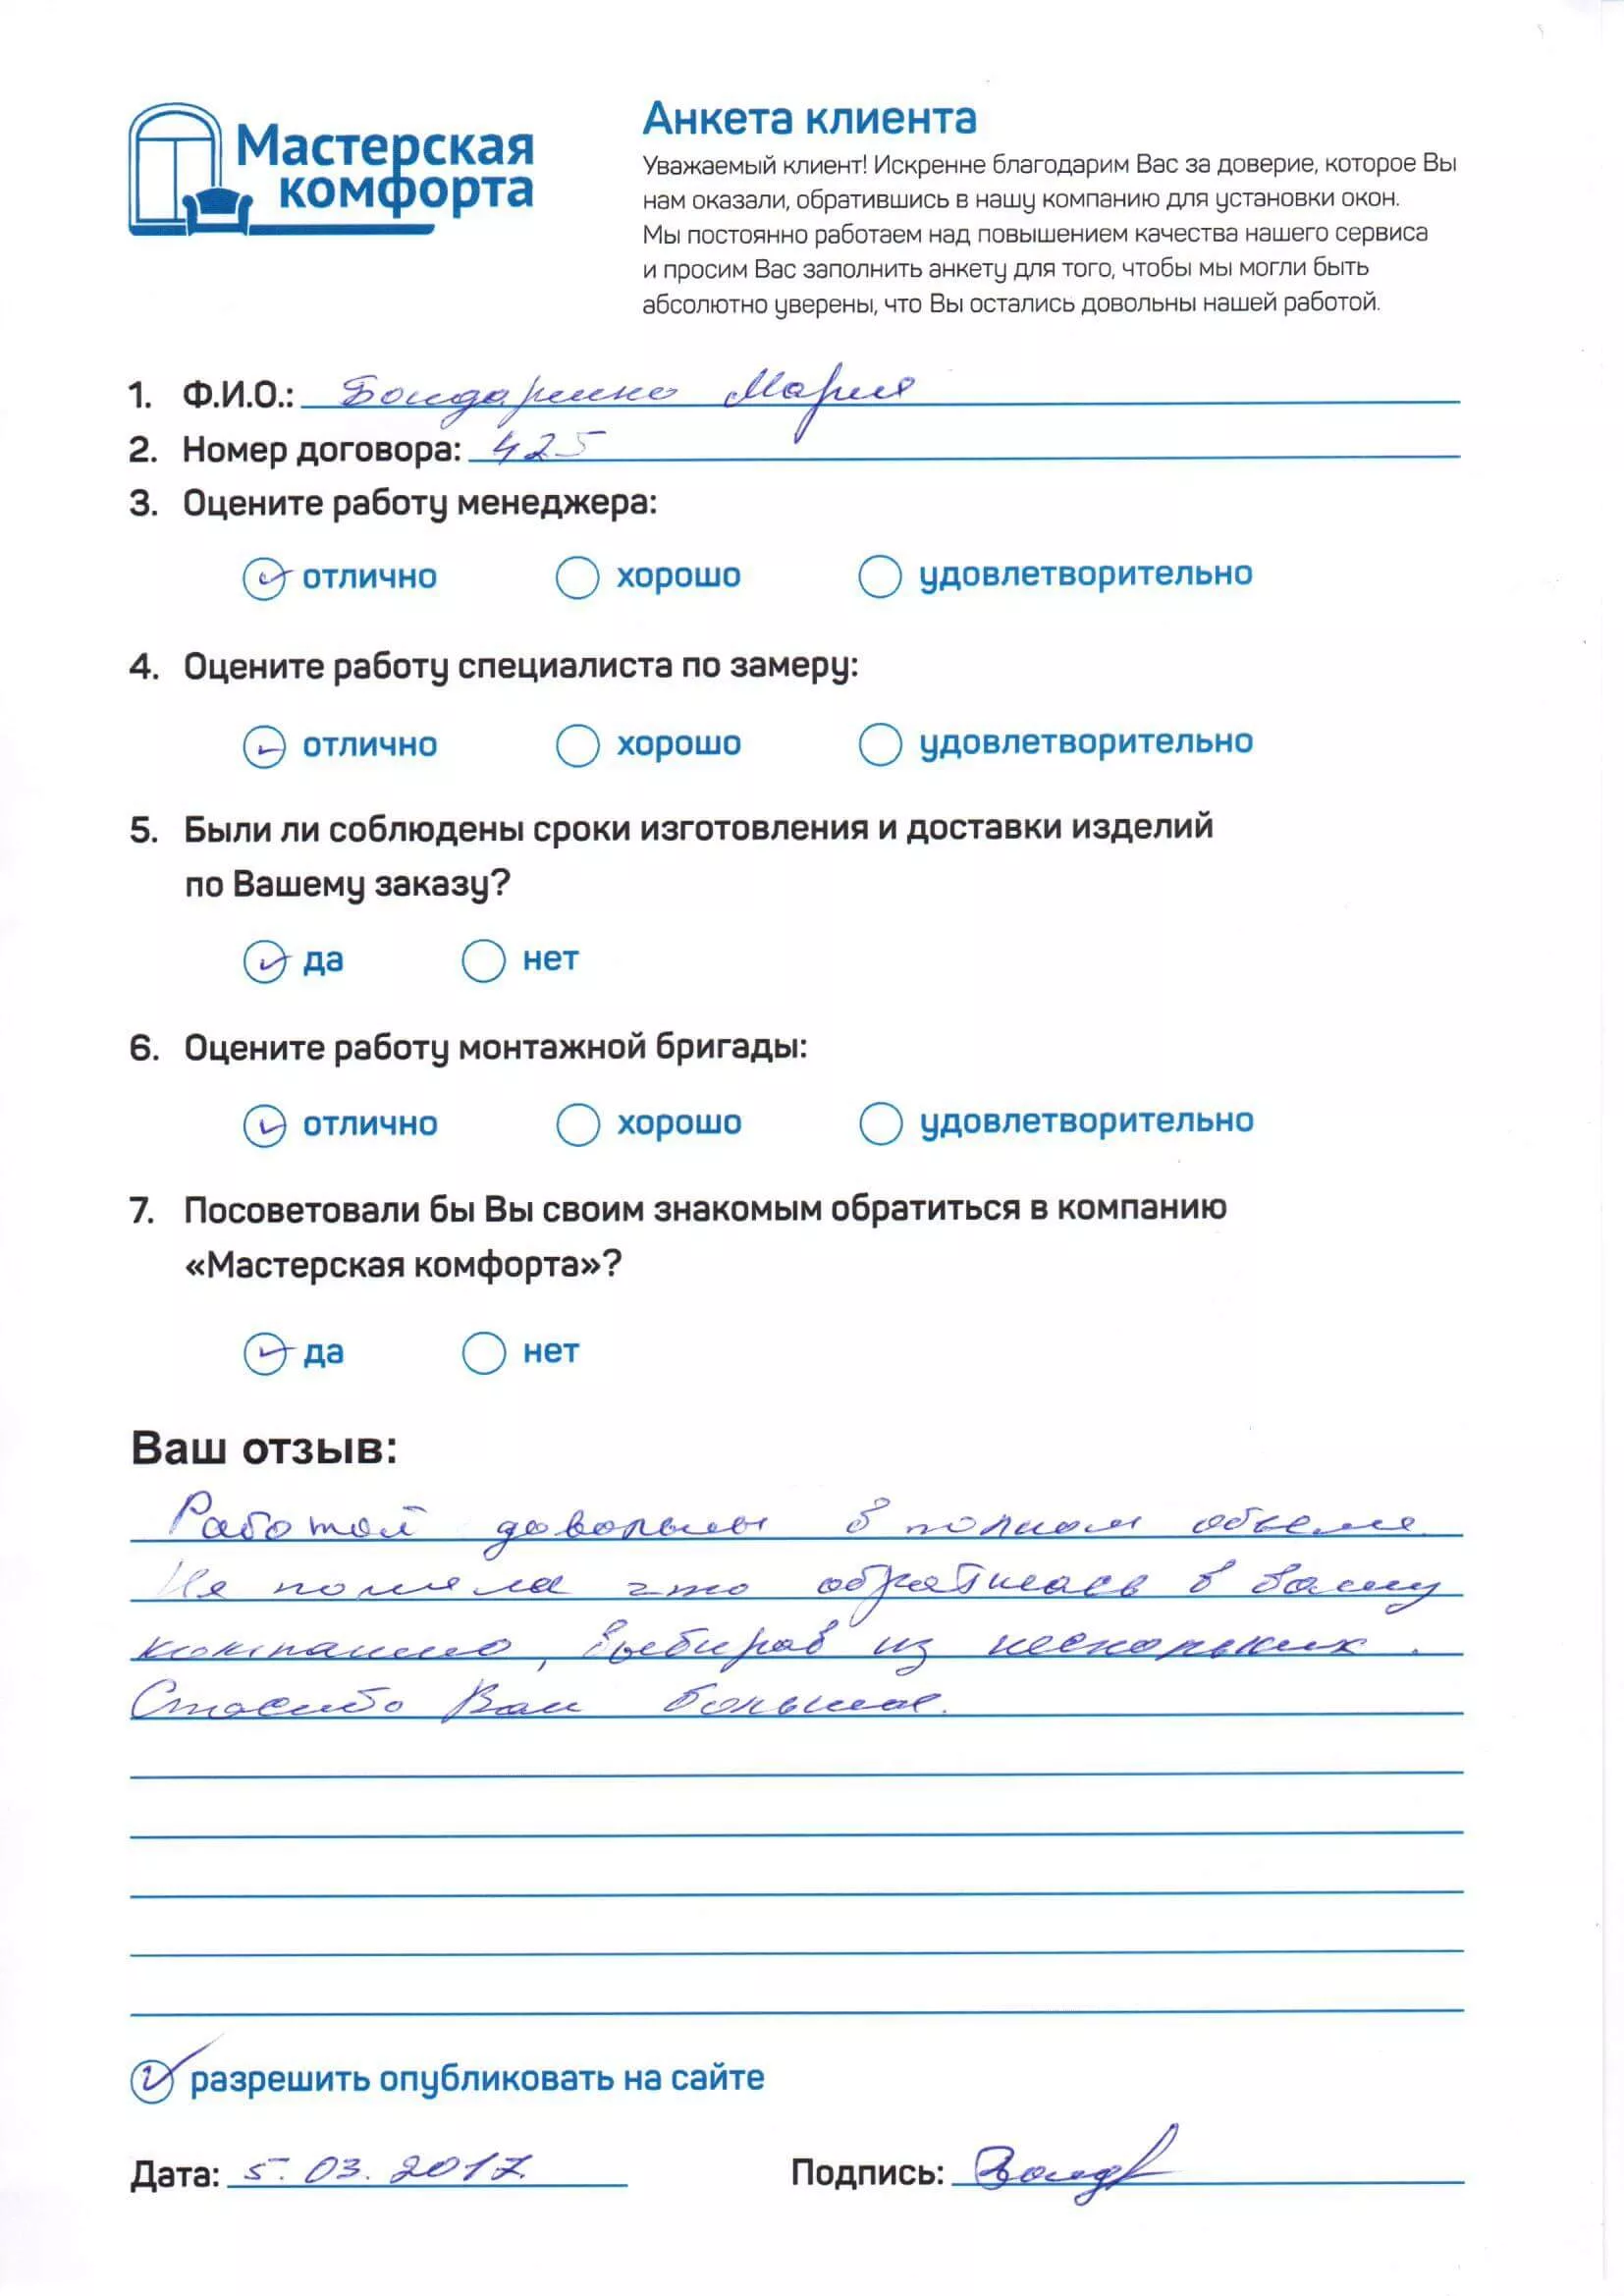 Мастерская
комфорта
Анкета клиента
Уважаемый клиент! Искренне благодарим Вас за доверие, которое Вы
нам оказали, обратившись в нашу компанию для установки окон.
Мы постоянно работаем над повышением качества нашего сервиса
и просим Вас заполнить анкету для того, чтобы мы могли быть
абсолютно уверены, что Вы остались довольны нашей работой.
1. Ф.И.О.: Бондаренко Мария
2. Номер договора: 425
3. Оцените работу менеджера:
отлично хорошо удовлетворительно
4. Оцените работу специалиста по замеру:
отлично хорошо удовлетворительно
5. Были ли соблюдены сроки изготовления и доставки изделий
по Вашему заказу?
да нет
6. Оцените работу монтажной бригады:
отлично хорошо удовлетворительно
7. Посоветовали бы Вы своим знакомым обратиться в компанию
«Мастерская комфорта»?
да нет
Ваш отзыв:
Работой довольны в полном объеме.
Не что обратилась в вашу
компанию, выбирав из нескольких.
Спасибо Вам большое.
разрешить опубликовать на сайте
Дата: 5.03.2017 Подпись: